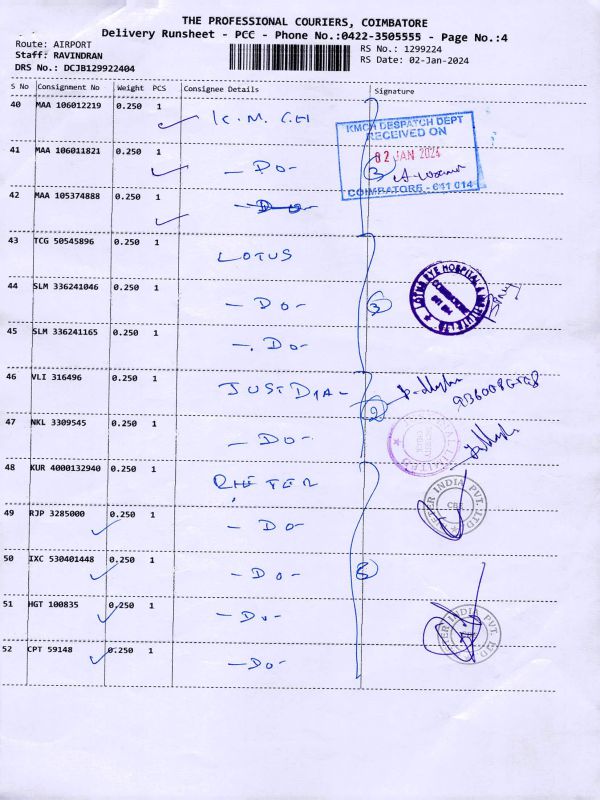 THE PROFESSIONAL COURIERS, COIMBATORE
Delivery Runsheet - PCC - Phone No.:0422-3505555 - Page No.:4
Route: AIRPORT
Staff: RAVINDRAN
DRS No.: DCJB129922404
RS No.: 1299224
RS Date: 02-Jan-2024
S No Consignment No Weight PCS Consignee Details Signature
40 MAA 106012219 0.250 1 K.M.C.H
KMCH DESPATCH DEPT
RECEIVED ON
02 JAN 2024
COIMBATORE - 641 014
41 MAA 106011821 0.250 1 - Do - 3
42 MAA 105374888 0.250 1 - Do -
43 TCG 50545896 0.250 1 LOTUS
LOTUS EYE HOSPITAL & INSTITUTE LTD
44 SLM 336241046 0.250 1 - Do - 3
45 SLM 336241165 0.250 1 - Do -
46 VLI 316496 0.250 1 JUST DIAL 2
47 NKL 3309545 0.250 1 - Do -
48 KUR 4000132940 0.250 1
INDIA PVT. LTD
CBE
49 RJP 3285000 0.250 1 - Do -
50 IXC 530401448 0.250 1 - Do - 5
51 HGT 100835 0.250 1 - Do -
INDIA PVT. LTD.
52 CPT 59148 0.250 1 - Do -